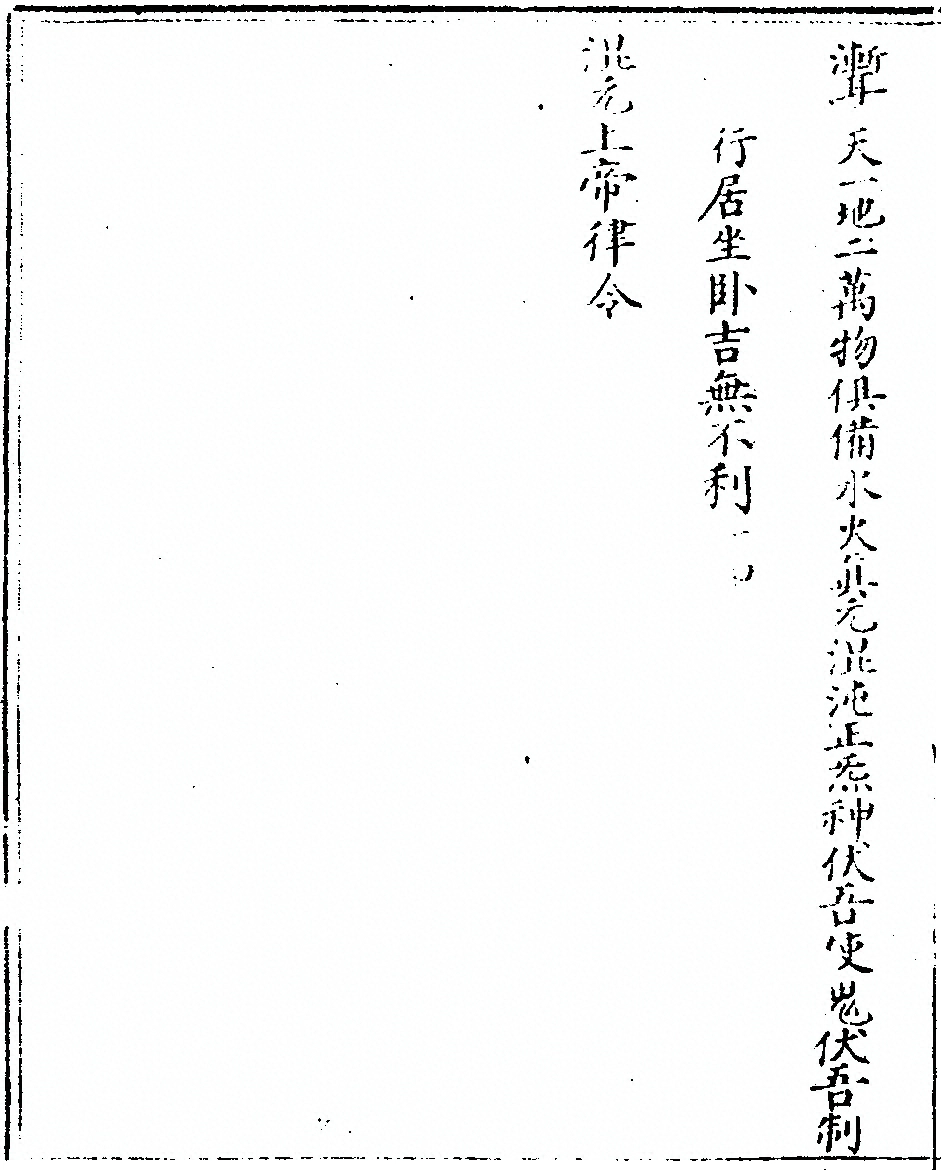 天一地二萬物俱備水火真元混沌正炁神伏吾使鬼伏吾制
行居坐卧吉無不利
混元上帝律令